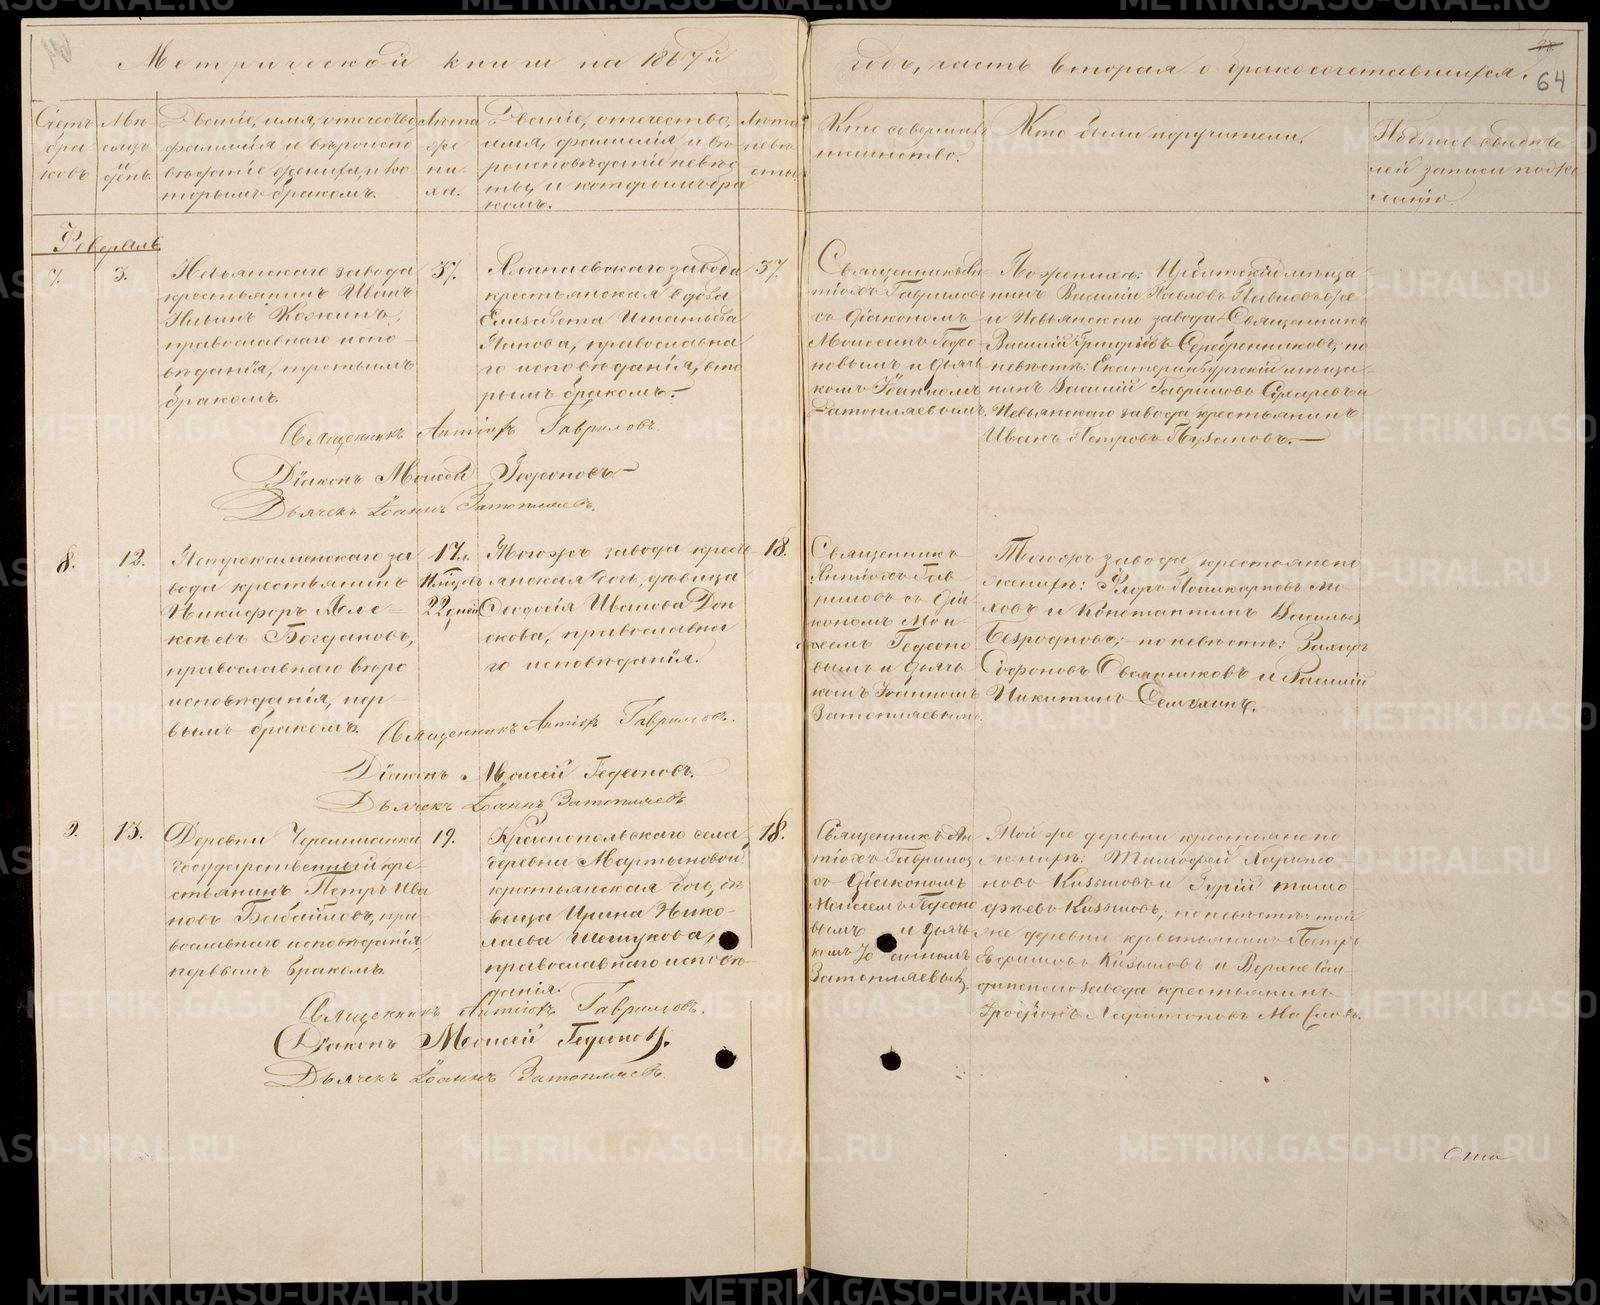 Метрической книги на 1867й
годъ, часть вторая о бракосочетавшихся.
64
Счетъ
бра-
ковъ
Мѣ-
сяцъ
день.
Званіе, имя, отечество,
фамилія и вѣроиспо
вѣданіе жениха, и ко
торымъ бракомъ.
Лета
же
ни-
ха.
Званіе, отечество,
имя, фамилія и вѣ
роисповѣданіе невѣс
ты, и которымъ бра
комъ.
Лета
невѣ
сты.
Кто совершалъ
таинство.
Кто были поручители.
лей записи по же
ланію.
Февраль
7.
3.
Невьянскаго завода
крестьянинъ Иванъ
Ильинъ
православнаго испо-
вѣданія, третьимъ
бракомъ.
37.
Алапаевскаго завода
крестьянская вдова
Елисавета Игнатьева
Попова, православна
го исповѣданія, вто
рымъ бракомъ.
37
Священникъ Ан-
тіохъ Гавриловъ
съ діакономъ
Моисеемъ Гедео-
новымъ и дьяч
комъ Іоанномъ
Затопляевымъ.
По женихѣ: Ирбитскій мѣща-
нинъ Василій Павловъ
и Невьянскаго завода Священникъ
Василій Григорьевъ Серебренниковъ; по
невѣстѣ: Екатеринбургскій мѣща-
нинъ Василій Гавриловъ и
Невьянскаго завода крестьянинъ
Иванъ Петровъ Пузановъ.
Священникъ Антіохъ Гавриловъ.
Діаконъ Моисей Гедеоновъ
Дьячекъ Іоаннъ Затопляевъ.
8.
12.
Петрокаменскаго за
вода крестьянинъ
Никифоръ Але-
ксѣевъ Богдановъ,
православнаго вѣро
исповѣданія, пер-
вымъ бракомъ.
17 л.
11 мѣсяцъ
22 дней
Тогожъ завода кресть
янская дочь, дѣвица
Феодосія Иванова Дон
скова, православна
го исповѣданія.
18.
Священникъ
Антіохъ Гав-
риловъ съ діа
кономъ Мои
сеемъ Гедеоно
вымъ и дьяч
комъ Іоанномъ
Затопляевымъ.
Тогожъ завода крестьяне по
женихѣ: Флоръ Поликарповъ
и Константинъ Васильевъ
по невѣстѣ: Захаръ
Софоновъ Овсянниковъ и Василій
Никитинъ
Священникъ Антіохъ Гавриловъ.
Діаконъ Моисей Гедеоновъ.
Дьячекъ Іоаннъ Затопляевъ
9.
13.
Деревни Черемшанки
государственный кре-
стьянинъ Петръ Ива
новъ Бабайловъ, пра
вославнаго исповѣданія,
первымъ бракомъ.
19.
Краснопольскаго села,
деревни Мартьяновой
крестьянская дочь, дѣ
вица Ирина Нико-
лаева Шешукова,
православнаго исповѣ-
данія.
18.
Священникъ Ан
тіохъ Гавриловъ
съ діакономъ
Моисеемъ Гедеоно
вымъ и дьяч
комъ Іоанномъ
Затопляевымъ.
Той же деревни крестьяне по
женихѣ: Тимофей Харито-
новъ и Гурій Тимо
фѣевъ по невѣстѣ: той
же деревни крестьянинъ Петръ
Ефимовъ и Верхне Сал-
динскаго завода крестьянинъ
Ларионовъ Масловъ.
Священникъ Антіохъ Гавриловъ.
Діаконъ Моисей Гедеоновъ.
Дьячекъ Іоаннъ Затопляевъ.
METRIKI.GASO-URAL.RU